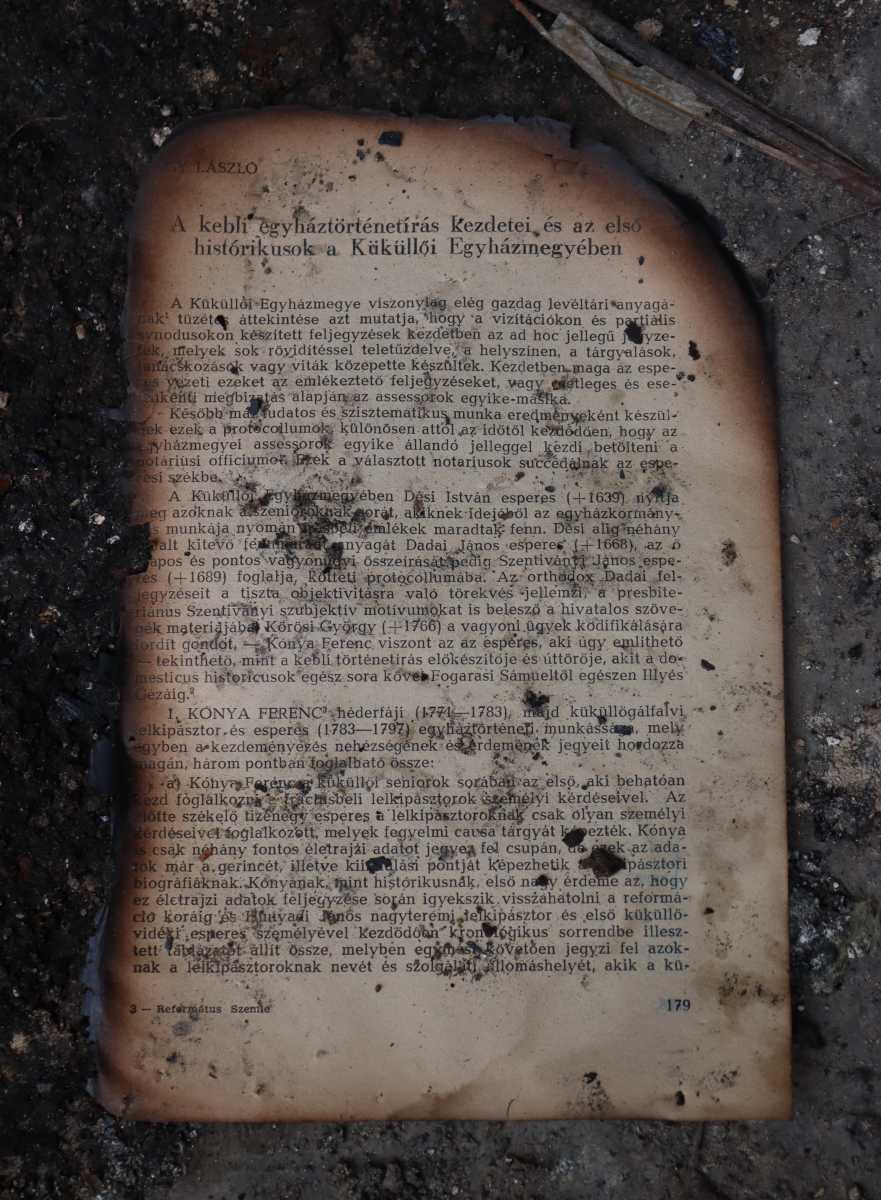 LÁSZLÓ
A kebli egyháztörténetírás kezdetei és az első
histórikusok a Küküllői Egyházmegyében
A Küküllői Egyházmegye viszonylag elég gazdag levéltári anyagá-
nak¹ tüzetes áttekintése azt mutatja, hogy a vizitációkon és partiális
synodusokon készített feljegyzések kezdetben az ad hoc jellegű jegyze-
tek, melyek sok rövidítéssel teletűzdelve, a helyszínen, a tárgyalások,
tanácskozások vagy viták közepette készültek. Kezdetben maga az espe-
res vezeti ezeket az emlékeztető feljegyzéseket, vagy esetleges és ese-
tenkénti megbízatás alapján az assessorok egyike-másika.
Később már tudatos és szisztematikus munka eredményeként készül-
nek ezek a protocollumok, különösen attól az időtől kezdődően, hogy az
egyházmegyei assessorok egyike állandó jelleggel kezdi betölteni a
notáriusi officiumot. Ezek a választott notariusok succedálnak az espe-
resi székbe.
A Küküllői Egyházmegyében Dési István esperes (+1639) nyitja
meg azoknak a senioroknak sorát, akiknek idejéből az egyházkormány-
zás munkája nyomán írásbeli emlékek maradtak fenn. Dési alig néhány
oldalt kitevő fennmaradt anyagát Dadai János esperes (+1668), az ő
alapos és pontos vagyonügyi összeírását pedig Szentiványi János espe-
res (+1689) foglalja, kötteti protocollumába. Az orthodox Dadai fel-
jegyzéseit a tiszta objektivitásra való törekvés jellemzi, a presbite-
riánus Szentiványi szubjektív motívumokat is beleszö a hivatalos szöve-
gek materiájába. Kőrösi György (+1766) a vagyoni ügyek kodifikálására
fordít gondot, — Kónya Ferenc viszont az az esperes, aki úgy említhető
— tekinthető, mint a kebli történetírás előkészítője és úttörője, akit a do-
mesticus historicusok egész sora követ Fogarasi Sámueltől egészen Illyés
Gézáig.²
1. KÓNYA FERENC³ héderfáji (1771—1783), majd küküllőgálfalvi
lelkipásztor és esperes (1783—1797) egyháztörténeti munkássága, mely
egyben a kezdeményezés nehézségének és érdemének jegyeit hordozza
magán, három pontban foglalható össze:
a) Kónya Ferenc a küküllői seniorok sorában az első, aki behatóan
kezd foglalkozni a tractusbeli lelkipásztorok személyi kérdéseivel. Az
előtte székelő tizenegy esperes a lelkipásztoroknak csak olyan személyi
kérdéseivel foglalkozott, melyek fegyelmi causa tárgyát képezték. Kónya
is csak néhány fontos életrajzi adatot jegyez fel csupán, de ezek az ada-
tok már a gerincét, illetve kiindulási pontját képezhetik a lelkipásztori
biográfiáknak. Kónyának, mint histórikusnak, első nagy érdeme az, hogy
ez életrajzi adatok feljegyzése során igyekszik visszahatolni a reformá-
ció koráig és Hunyadi János nagyteremi lelkipásztor és első küküllő-
vidéki esperes személyével kezdődően kronológikus sorrendbe illesz-
tett táblázatot állít össze, melyben egymást követően jegyzi fel azok-
nak a lelkipásztoroknak nevét és szolgálati állomáshelyét, akik a kü-
3 — Református Szemle
179